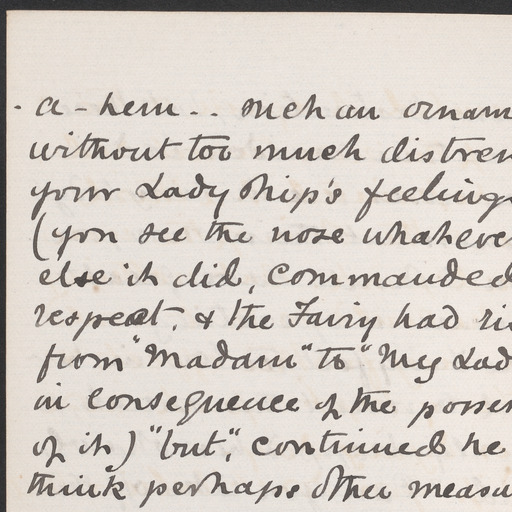 - a-hem.. such an ornam
without too much distres
your Ladyship's feelings
(you see the nose whatever
else it did, commanded
respect, & the Fairy had ri
from "Madam" to "My Lad
in consequence of the posses
of it) "but", continued he
think perhaps other measu